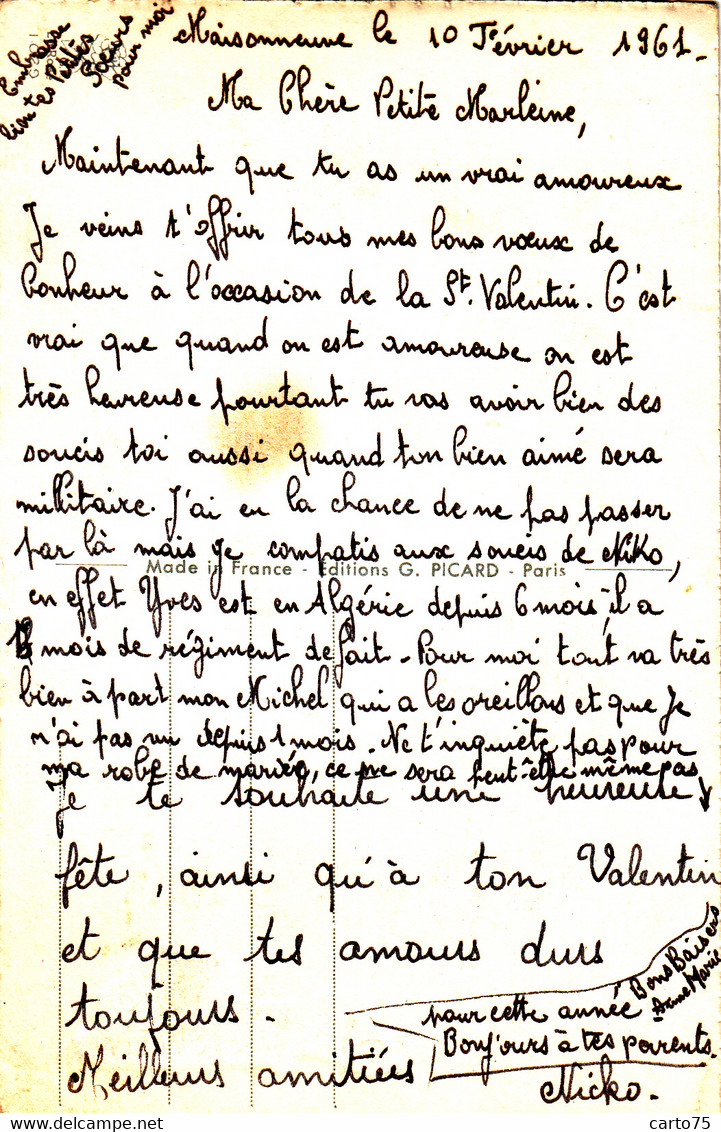 Embrasse
bien tes Petites
Soeurs
pour moi
Maisonneuve le 10 Février 1961.
Ma Chère Petite Marleine,
Maintenant que tu as un vrai amoureux
Je veins t'offrir tous mes bons vœux de
bonheur à l'occasion de la St. Valentin. C'est
vrai que quand on est amoureuse on est
très heureuse pourtant tu vas avoir bien des
soucis toi aussi quand ton bien aimé sera
militaire. J'ai eu la chance de ne pas passer
par là mais je compatis aux soucis de Niko,
Made in France - Editions G. PICARD - Paris
en effet Yves est en Algérie depuis 6 mois, il a
mois de régiment de fait. Pour moi tout va très
bien à part mon Michel qui a les oreillons et que Je
n'ai pas vu depuis 1 mois. Ne t'inquiète pas pour
ma robe de mariée, ce ne sera peut-être même pas
Je te souhaite une heureuse
fête, ainsi qu'à ton Valentin
et que tes amours durs
toujours.
pour cette année
Bons Baisers
Anne Marie
Bonjours à tes parents.
Meilleurs amitiées
Nicko.
carto75